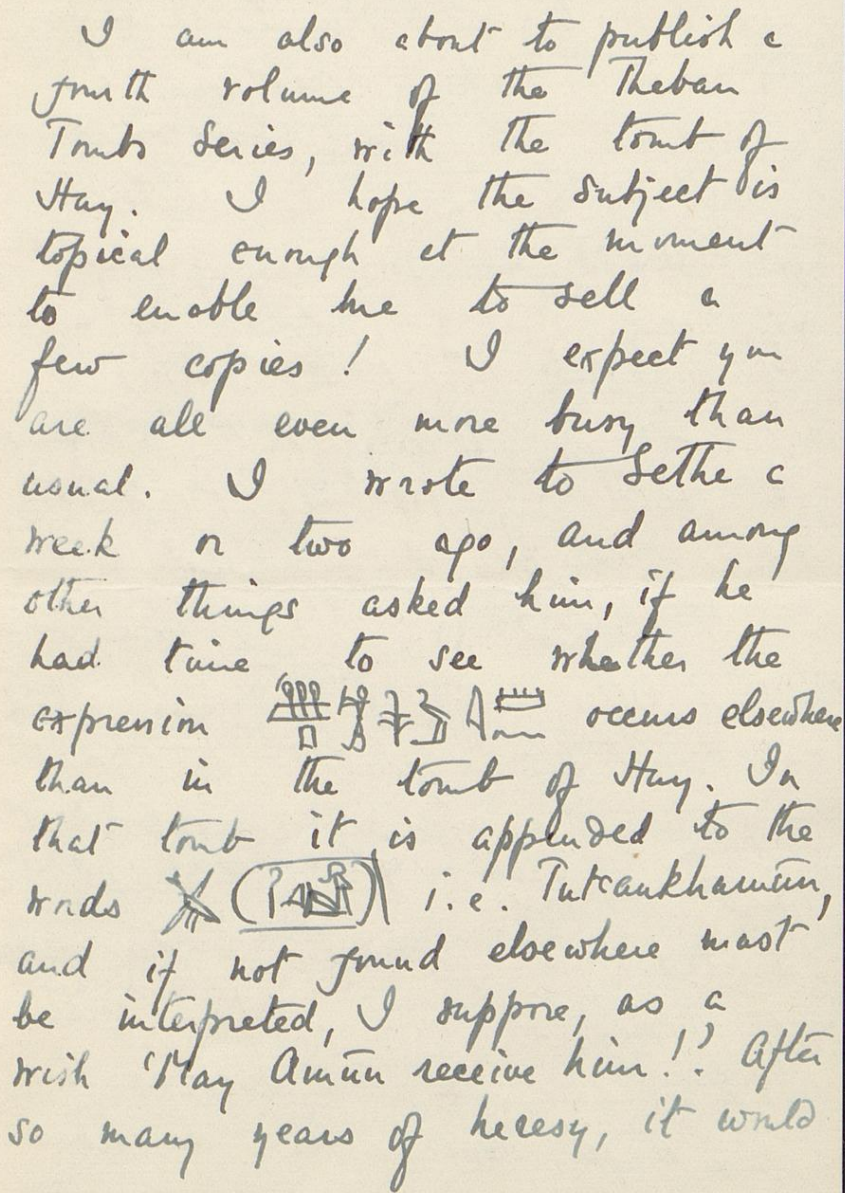 I am also about to publish a
fourth volume of the Theban
Tombs Series, with the tomb of
Huy. I hope the subject is
topical enough at the moment
to enable me to sell a
few copies! I expect you
are all even more busy than
usual. I wrote to Sethe a
week or two ago, and among
other things asked him, if he
had time to see whether the
expression occurs elsewhere
than in the tomb of Huy. In
that tomb it is appended to the
words i.e. Tutꜥankhamūn,
and if not found elsewhere must
be interpreted, I suppose, as a
wish 'May Amūn receive him!'. After
so many years of heresy, it would